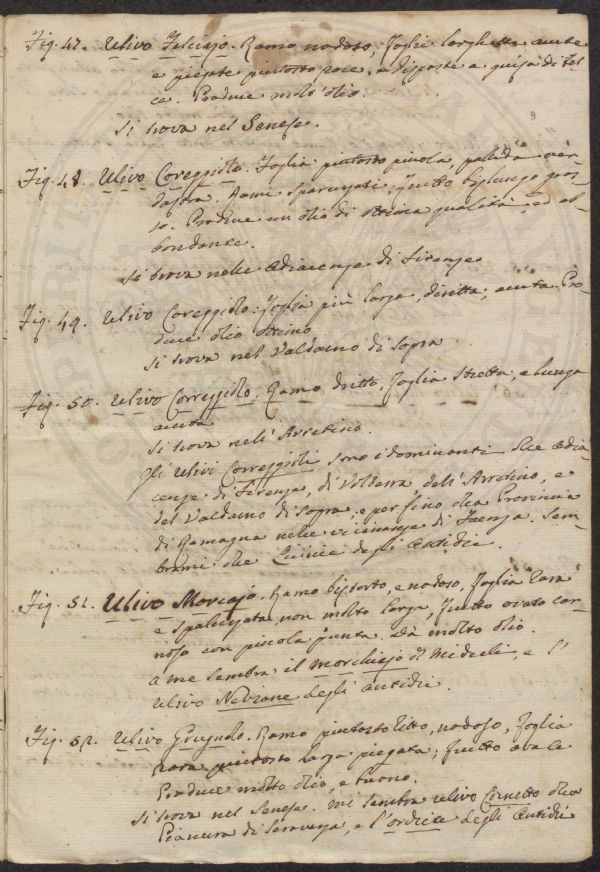 Fig. 47. Ulivo Felciajo. Ramo nodoso, foglie larghette acute
e piegate piuttosto rare, e disposte a guisa di Fel
ce. Produce molt'olio.
Si trova nel Senese.
Fig. 48. Ulivo Coreggiolo. Foglia piuttosto picola, palida ver-
dastra. Rami sparuzati, frutto bislungo gros-
so. Produce un olio di ottima qualità, ed ab-
bondante.
Si trova nelle adiacenze di Firenze
Fig. 49. Ulivo Coreggiolo. Foglia più larga, diritta, acuta. Pro-
duce olio ottimo
Si trova nel Valdarno di Sopra
Fig. 50. Ulivo Correggiolo. Ramo dritto, foglia stretta, e lunga
acuta
Si trova nell'Arretino.
Gli Ulivi Correggioli sono i dominanti alle adia-
cenze di Firenze, di dell'Arretino, e
del Valdarno di sopra, e per fino alla Provincia
di Romagna nelle vicinanze di Faenza. Sem-
brami che degli Antichi.
Fig. 51. Ulivo Morcajo. Ramo bistorto, e nodoso, foglia rara
e, non molto larga, frutto ovato car-
noso con piccola punta. Dà molto olio.
a me sembra il morchiajo di Micheli, e l'
ulivo Nevione degli antichi.
Fig. 52. Ulivo Grugnolo. Ramo piuttosto fitto, nodoso, foglia
rara piuttosto larga piegata; frutto ovale
Produce molto olio, e buono.
Si trova nel Senese. mi sembra ulivo Cornetto alla
Pianura di Seravezza, e l'ordica degli Antichi